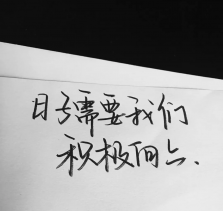 日子需要我们
积极向上、